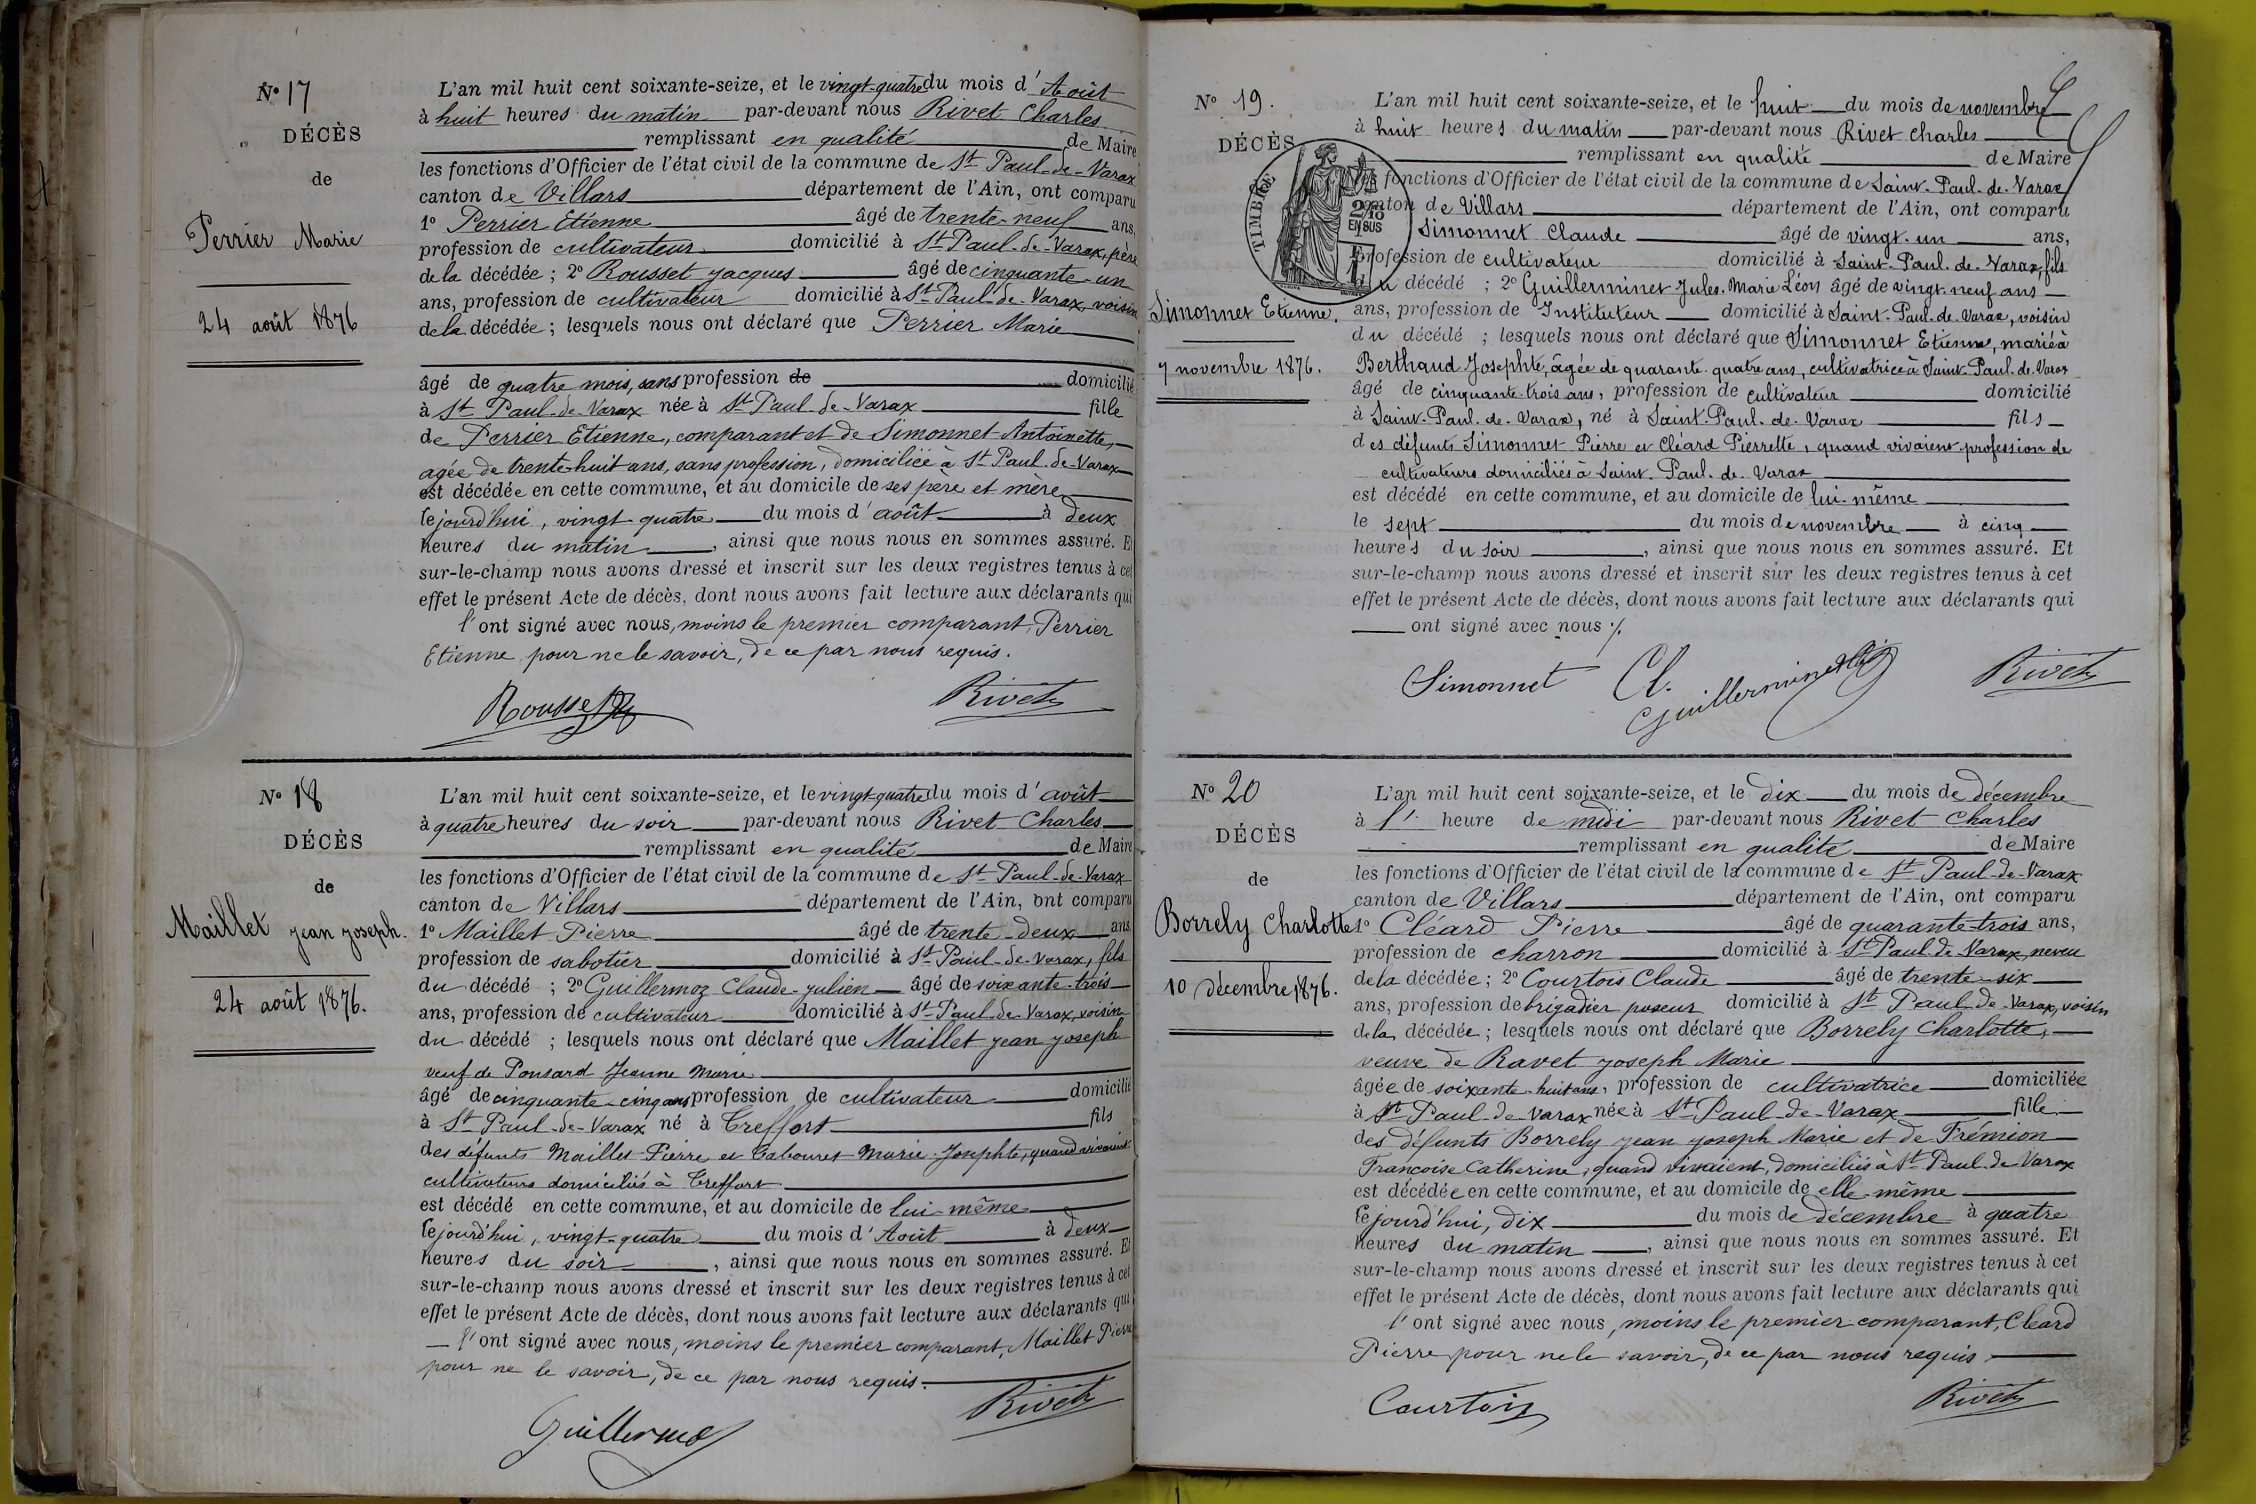 N° 17
DÉCÈS
de
Perrier Marie
24 août 1876
L'an mil huit cent soixante-seize, et le vingt-quatre du mois d'Août
à huit heures du matin par-devant nous Rivet Charles
remplissant en qualité de Maire
les fonctions d'Officier de l'état civil de la commune de St Paul-de-Varax
canton de Villars département de l'Ain, ont comparu
1° Perrier Etienne âgé de trente-neuf ans,
profession de cultivateur domicilié à St Paul-de-Varax, père
de la décédée ; 2° Rousset Jacques âgé de cinquante-un
ans, profession de cultivateur domicilié à St Paul-de-Varax, voisin
de la décédée ; lesquels nous ont déclaré que Perrier Marie
âgé de quatre mois, sans profession de domicilié
à St Paul-de-Varax née à St Paul-de-Varax fille
de Perrier Etienne, comparant et de Simonnet Antoinette,
agée de trente-huit ans, sans profession, domiciliée à St Paul-de-Varax
est décédée en cette commune, et au domicile de ses père et mère
cejourd'hui, vingt-quatre du mois d'août à deux
heures du matin, ainsi que nous nous en sommes assuré. Et
sur-le-champ nous avons dressé et inscrit sur les deux registres tenus à cet
effet le présent Acte de décès, dont nous avons fait lecture aux déclarants qui
l'ont signé avec nous, moins le premier comparant, Perrier
Etienne pour ne le savoir, de ce par nous requis.
Rousset Rivet
N° 18
DÉCÈS
de
Maillet Jean Joseph.
24 août 1876.
L'an mil huit cent soixante-seize, et le vingt-quatre du mois d'août
à quatre heures du soir par-devant nous Rivet Charles
remplissant en qualité de Maire
les fonctions d'Officier de l'état civil de la commune de St Paul-de-Varax
canton de Villars département de l'Ain, ont comparu
1° Maillet Pierre âgé de trente-deux ans
profession de sabotier domicilié à St Paul-de-Varax, fils
du décédé ; 2° Guillermoz Claude-Julien âgé de soixante-trois
ans, profession de cultivateur domicilié à St Paul-de-Varax, voisin
du décédé ; lesquels nous ont déclaré que Maillet Jean Joseph
veuf de Ponsard Jeanne Marie
âgé de cinquante-cinq ans profession de cultivateur domicilié
à St Paul-de-Varax né à Treffort fils
des défunts Maillet Pierre et Cabouret Marie-Josephte, quand vivaient
cultivateurs domiciliés à Treffort
est décédé en cette commune, et au domicile de lui-même
cejourd'hui, vingt-quatre du mois d'Août à deux
heures du soir, ainsi que nous nous en sommes assuré. Et
sur-le-champ nous avons dressé et inscrit sur les deux registres tenus à cet
effet le présent Acte de décès, dont nous avons fait lecture aux déclarants qui
l'ont signé avec nous, moins le premier comparant, Maillet Pierre
pour ne le savoir, de ce par nous requis.
Guillermoz Rivet
N° 19.
DÉCÈS
TIMBRE
2/10
EN SUS
Simonnet Etienne.
7 novembre 1876.
L'an mil huit cent soixante-seize, et le huit du mois de novembre
à huit heures du matin par-devant nous Rivet Charles
remplissant en qualité de Maire
les fonctions d'Officier de l'état civil de la commune de Saint-Paul-de-Varax
canton de Villars département de l'Ain, ont comparu
Simonnet Claude âgé de vingt-un ans,
profession de cultivateur domicilié à Saint-Paul-de-Varax, fils
du décédé ; 2° Guillerminet Jules-Marie Léon âgé de vingt-neuf ans
ans, profession de Instituteur domicilié à Saint-Paul-de-Varax, voisin
du décédé ; lesquels nous ont déclaré que Simonnet Etienne, marié à
Berthaud Josephte, âgée de quarante-quatre ans, cultivatrice à Saint-Paul-de-Varax
âgé de cinquante-trois ans, profession de cultivateur domicilié
à Saint-Paul-de-Varax, né à Saint-Paul-de-Varax fils
des défunts Simonnet Pierre et Cléard Pierrette, quand vivaient profession de
cultivateurs domiciliés à Saint-Paul-de-Varax
est décédé en cette commune, et au domicile de lui-même
le sept du mois de novembre à cinq
heures du soir, ainsi que nous nous en sommes assuré. Et
sur-le-champ nous avons dressé et inscrit sur les deux registres tenus à cet
effet le présent Acte de décès, dont nous avons fait lecture aux déclarants qui
ont signé avec nous ./.
Simonnet Cl. Guillerminet Rivet
N° 20
DÉCÈS
de
Borrely Charlotte
10 décembre 1876.
L'an mil huit cent soixante-seize, et le dix du mois de décembre
à l'. heure de midi par-devant nous Rivet Charles
remplissant en qualité de Maire
les fonctions d'Officier de l'état civil de la commune de St Paul-de-Varax
canton de Villars département de l'Ain, ont comparu
1° Cléard Pierre âgé de quarante-trois ans,
profession de charron domicilié à St Paul-de-Varax, neveu
de la décédée ; 2° Courtois Claude âgé de trente-six
ans, profession de brigadier poseur domicilié à St Paul-de-Varax, voisin
de la décédée ; lesquels nous ont déclaré que Borrely Charlotte,
veuve de Ravet Joseph Marie
âgée de soixante-huit ans, profession de cultivatrice domiciliée
à St Paul-de-Varax née à St Paul-de-Varax fille
des défunts Borrely Jean Joseph Marie et de Frémion
Françoise Catherine, quand vivaient, domiciliés à St Paul-de-Varax
est décédée en cette commune, et au domicile de elle-même
cejourd'hui, dix du mois de décembre à quatre
heures du matin, ainsi que nous nous en sommes assuré. Et
sur-le-champ nous avons dressé et inscrit sur les deux registres tenus à cet
effet le présent Acte de décès, dont nous avons fait lecture aux déclarants qui
l'ont signé avec nous, moins le premier comparant, Cleard
Pierre pour ne le savoir, de ce par nous requis
Courtois Rivet